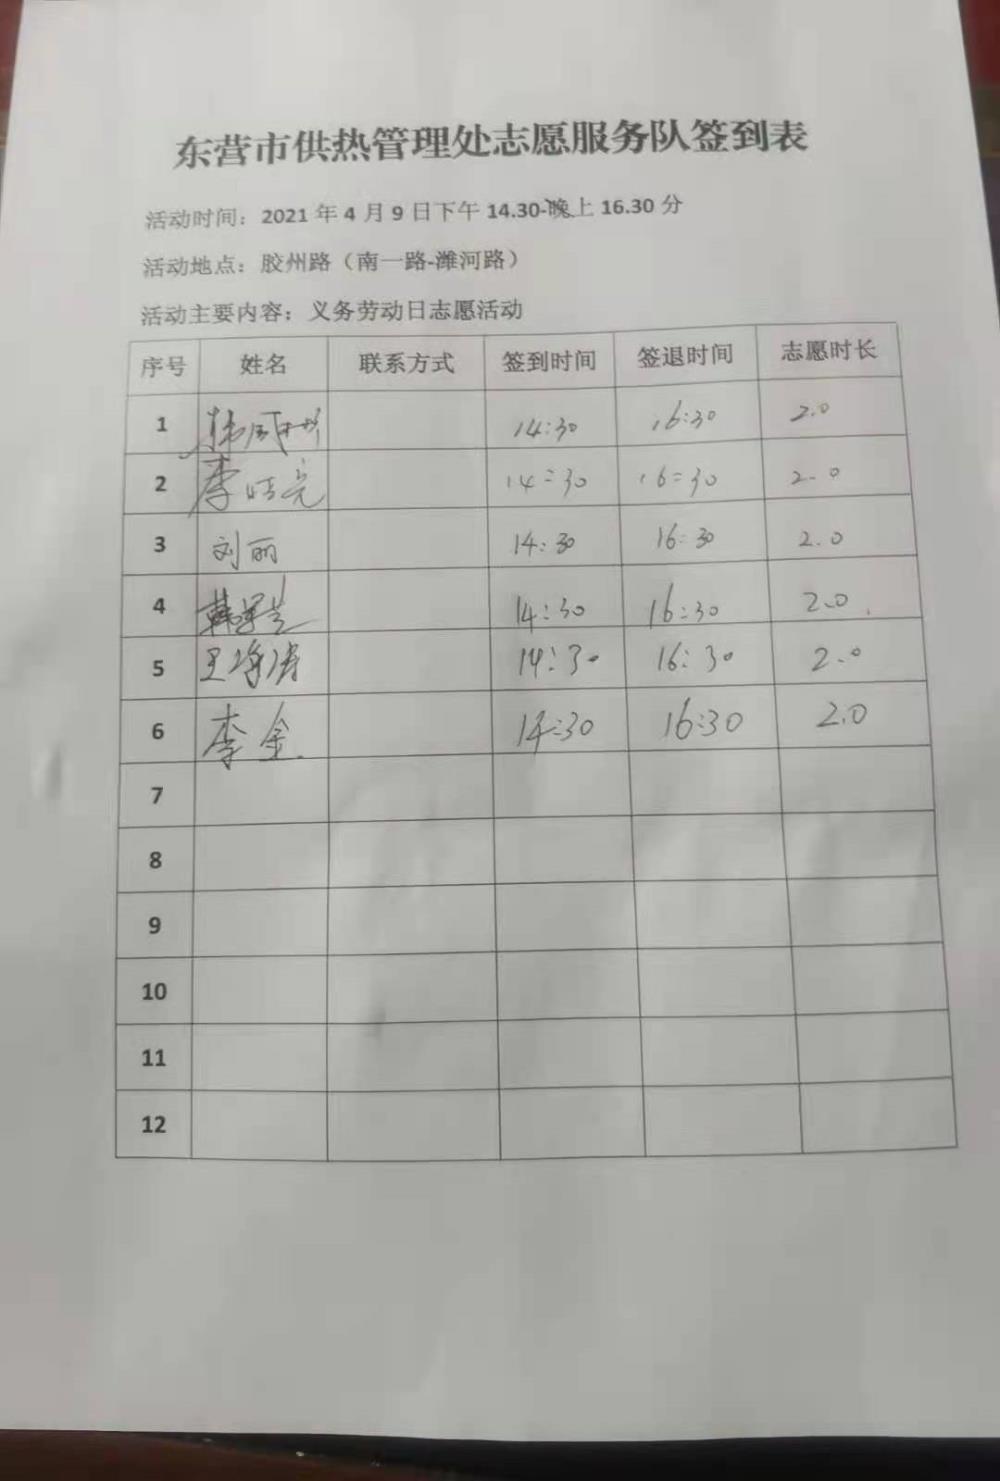 东营市供热管理处志愿服务队签到表
活动时间：2021 年 4 月 9 日下午 14.30-晚上 16.30 分
活动地点：胶州路（南一路-潍河路）
活动主要内容：义务劳动日志愿活动
序号 姓名 联系方式 签到时间 签退时间 志愿时长
1 14:30 16:30 2.0
2 李 亮 14:30 16:30 2.0
3 刘丽 14:30 16:30 2.0
4 韩 14:30 16:30 2.0
5 王 涛 14:30 16:30 2.0
6 李金 14:30 16:30 2.0
7
8
9
10
11
12